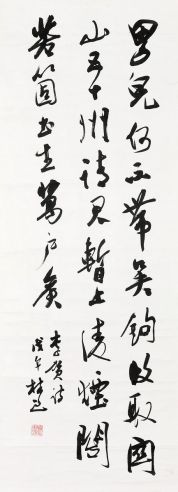 男兒何不帶吳鉤收取關
山五十州請君暫上凌煙閣
若箇書生萬戶侯
李賀詩